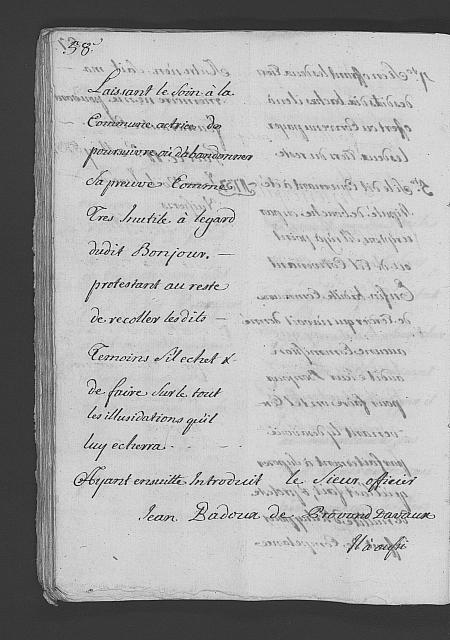 58.
Laissant le Soin à la
Commune actrice de
poursuivre ou d'abandonner
Sa preuve Comme
Tres Inutile à legard
dudit Bonjour. —
protestant au reste
de recoller les dits —
Temoins S'il echet &
de faire Sur le tout
les illusidations qu'il
luy echerra. - -
Ayant ensuitte Introduit le Sieur officier
Jean Badoux de
Il a aussi